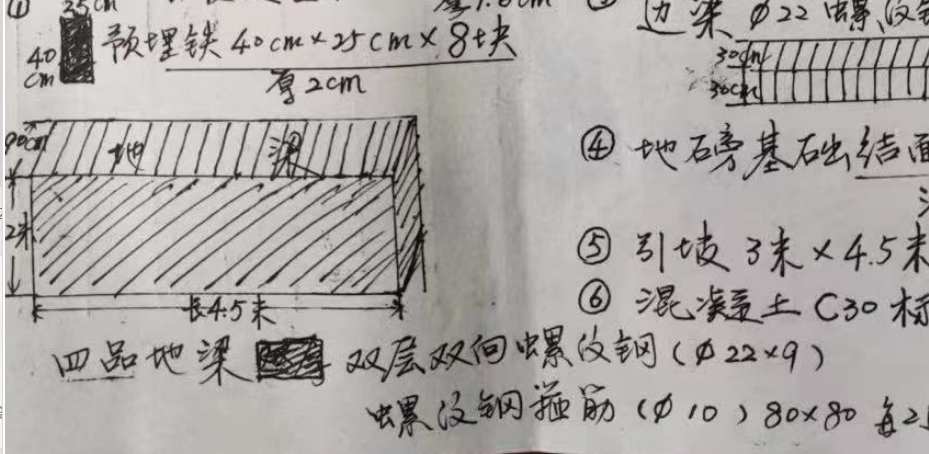 ① 25cm
40cm
预埋铁 40cm×25cm×8块
厚2cm
边梁 φ22 螺纹
30cm
30cm
90cm
地 梁
2米
长4.5米
④ 地磅基础结面
⑤ 引坡 3米×4.5米
⑥ 混凝土 C30 标
四品地梁 双层双向螺纹钢(φ22×9)
螺纹钢箍筋(φ10)80×80 每2